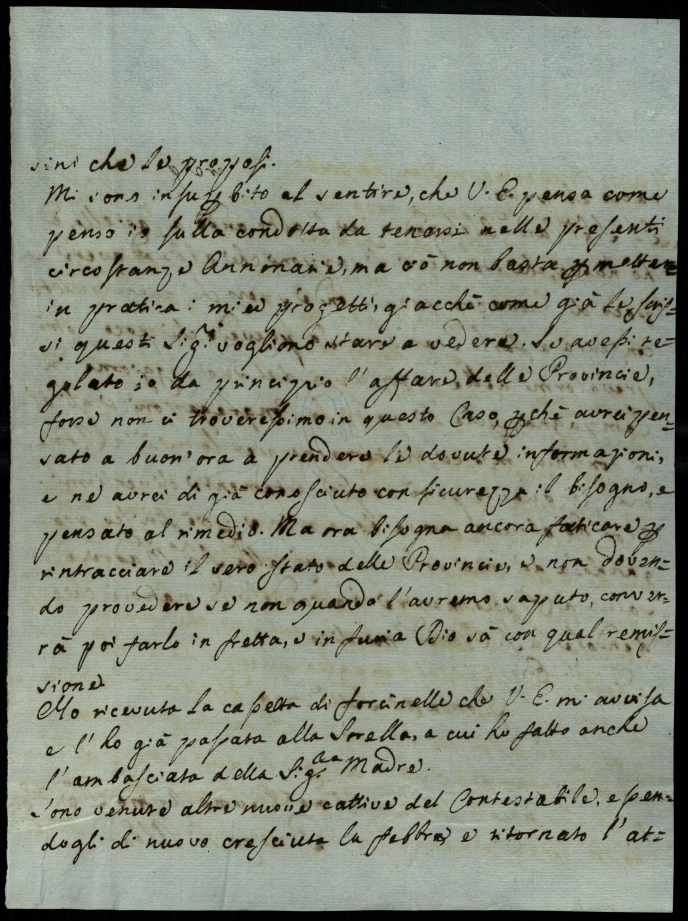 sini che le proposi.
Mi sono insuperbito al sentire, che V. E. pensa come
penso io sulla condotta da tenersi nelle presenti
circostanze Annonarie, ma ciò non basta p metter
in pratica i miei progetti, giacchè come già le scris=
si questi Sigri vogliono stare a vedere. Se avessi re=
golato io da principio l'affare delle Provincie,
forse non ci troveressimo in questo Caso, pchè avrei pen=
sato a buon'ora a prendere le dovute informazioni,
e ne avrei di già conosciuto con sicurezza il bisogno, e
pensato al rimedio. Ma ora bisogna ancora faticare p
rintracciare il vero stato delle Provincie, e non doven=
do provedere se non quando l'avremo saputo, conver=
rà poi farlo in fretta, e in furia Dio sà con qual remis=
sione
Ho ricevuta la cassetta di forcinelle che V. E. mi avvisa
e l'ho già passata alla Sorella, a cui ho fatto anche
l'ambasciata della Sigra Madre.
Sono venute altre nuove cattive del Contestabile, essen=
dogli di nuovo cresciuta la febbre, e ritornato l'at=